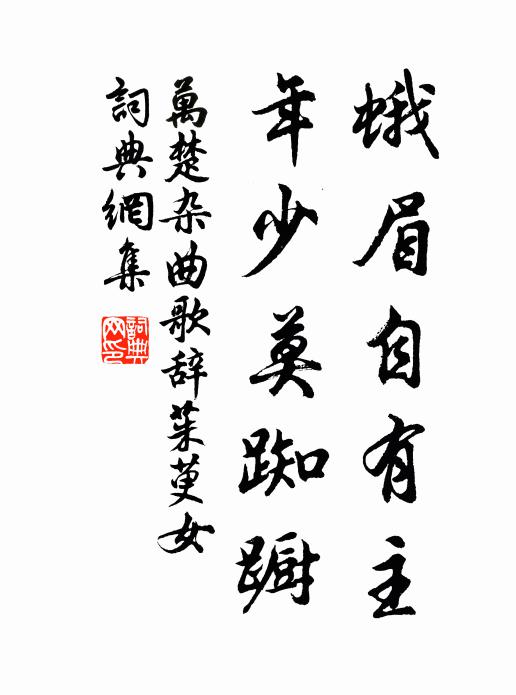 蛾眉自有主
年少莫踟蹰
萬楚杂曲歌辞茱萸女
詞典網集
詞典
网印